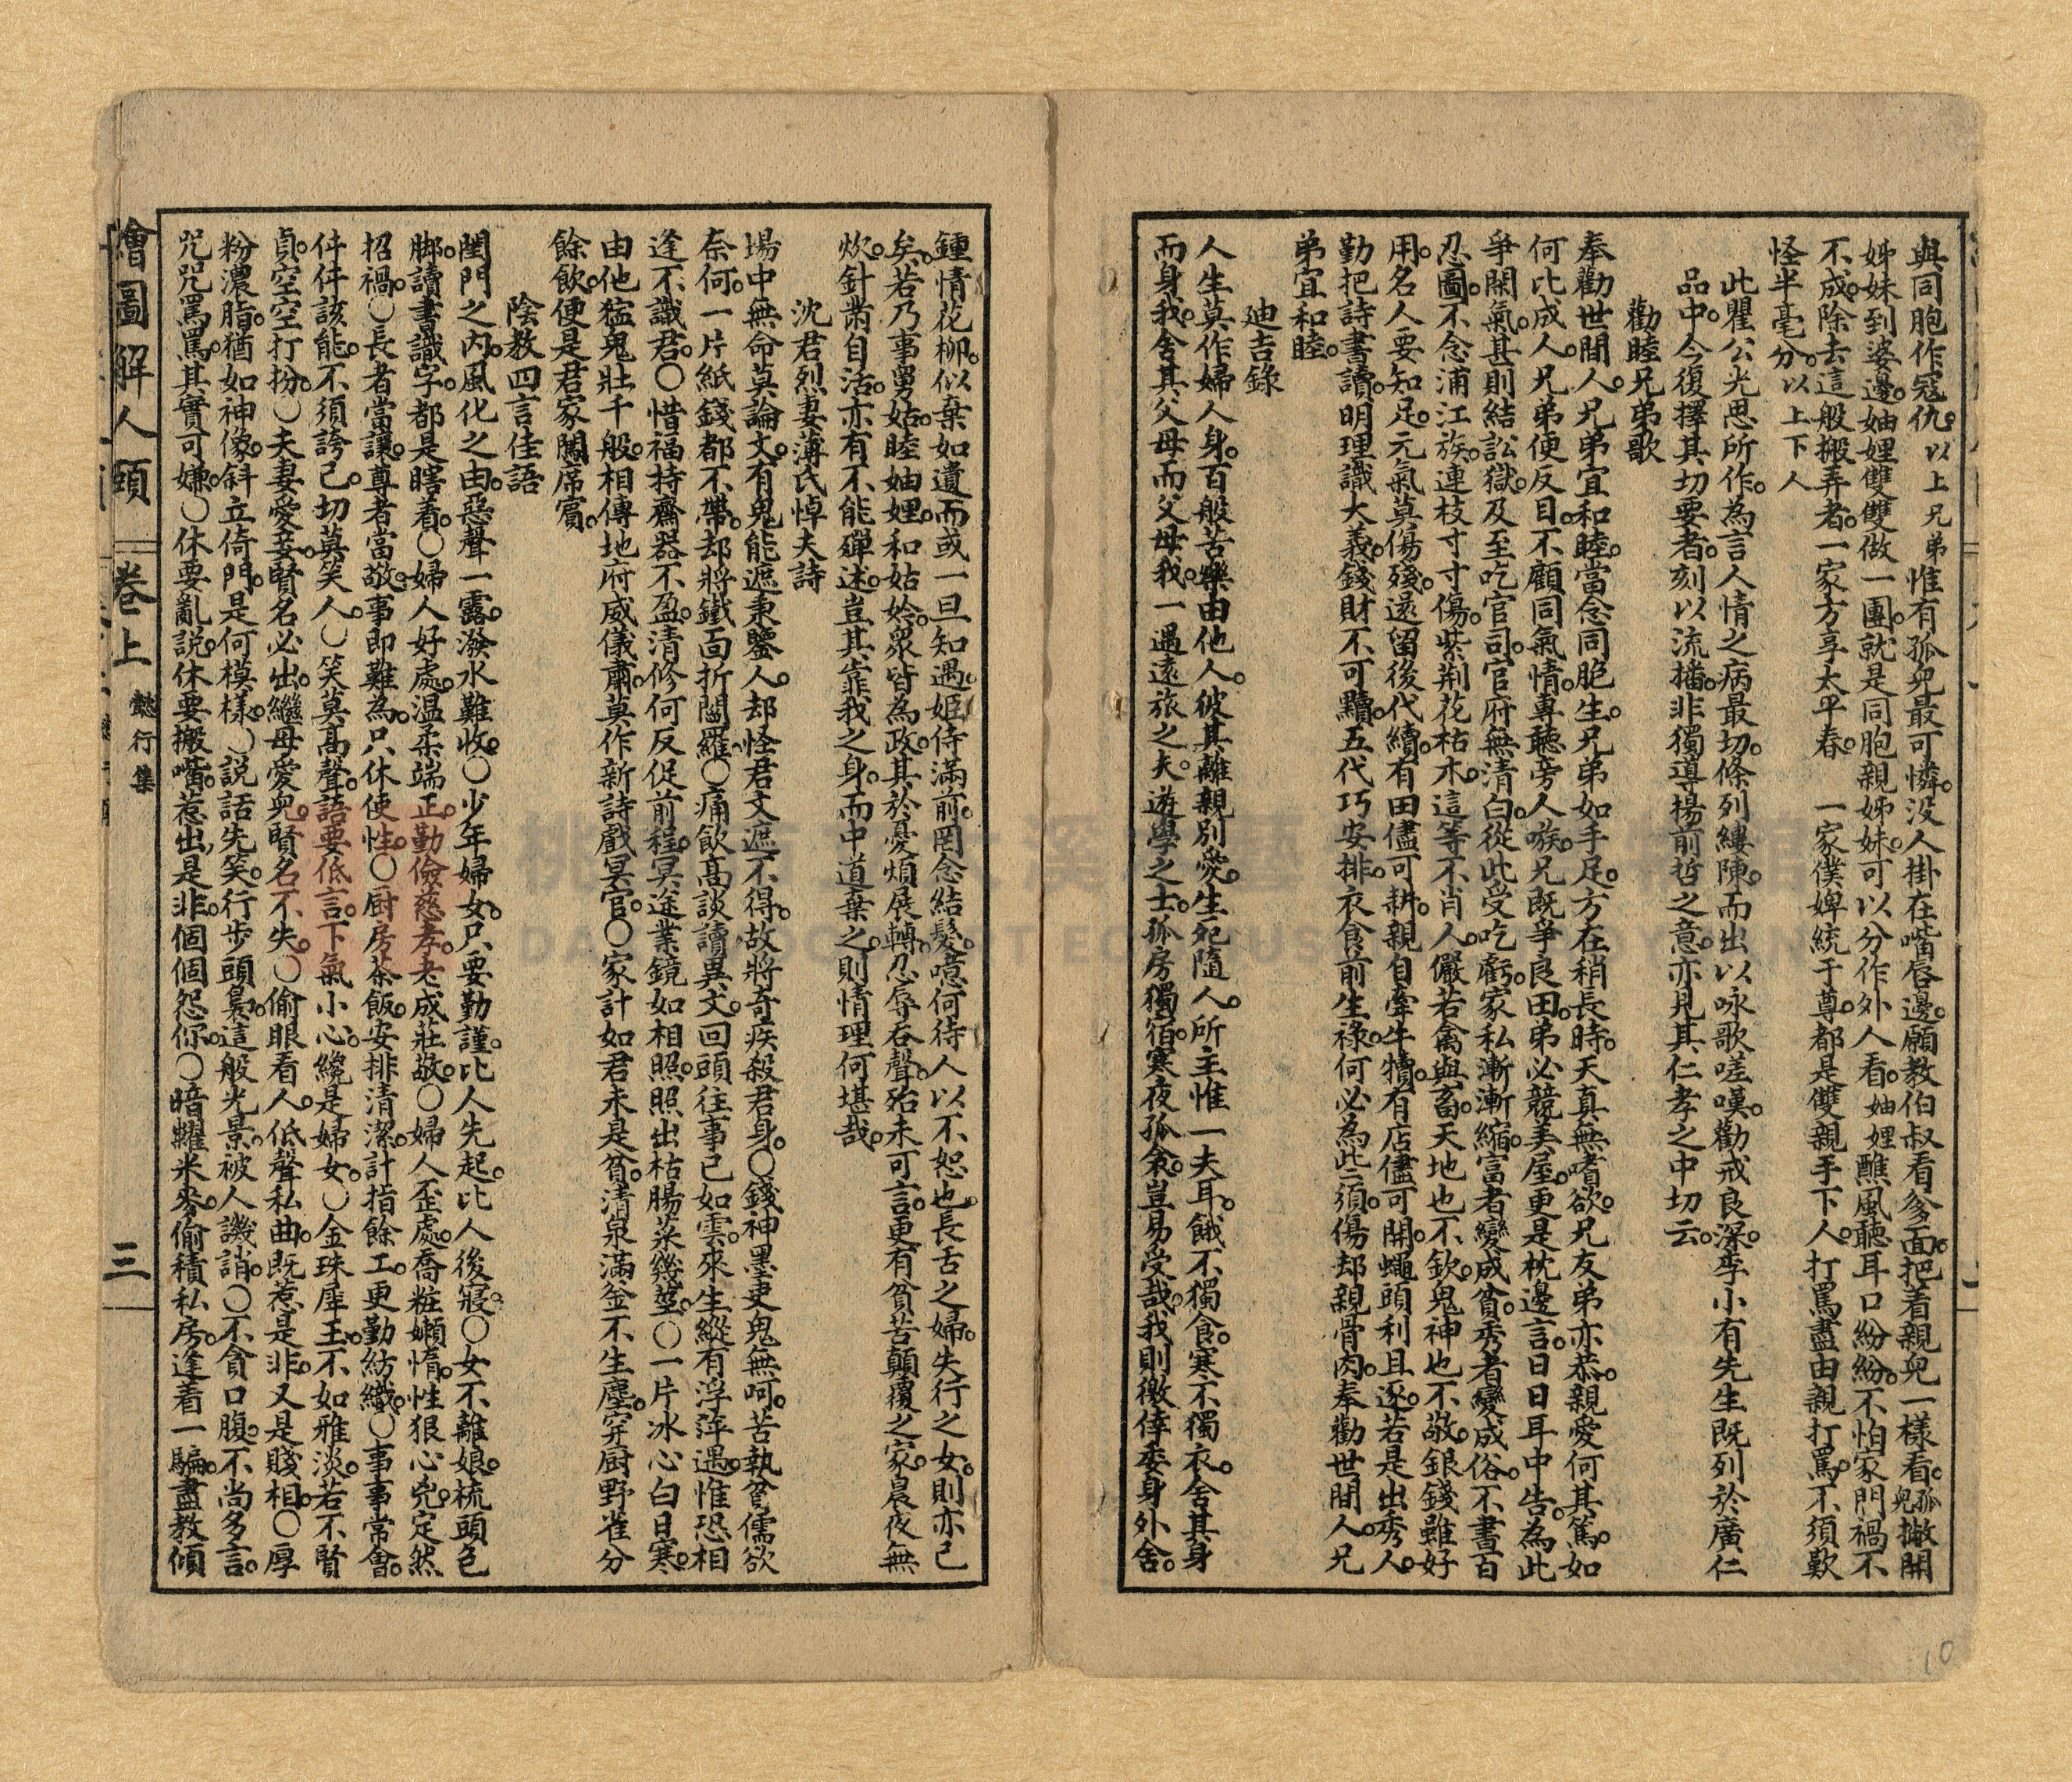 與同胞作寇仇。以上兄弟　惟有孤兒最可憐。沒人掛在嘴唇邊。願教伯叔看爹面。把看親兒一樣看。孤兒撇開
姊妹到婆邊。妯娌雙雙做一團。就是同胞親姊妹。可以分作外人看。妯娌醮風聽耳口紛紛。不怕家門禍不
不成。除去這般搬弄者。一家方享太平春。　一家僕婢統于尊。都是雙親手下人。打罵盡由親打罵。不須歎
怪半毫分。以上下人
此瞿公光思所作。為言人情之病最切。條列縷陳。而出以咏歌嗟嘆。勸戒良深。季小有先生既列於廣仁
品中。今復擇其切要者。刻以流播。非獨導揚前哲之意。亦見其仁孝之中切云。
勸睦兄弟歌
奉勸世間人。兄弟宜和睦。當念同胞生。兄弟如手足。方在稍長時。天真無嗜欲。兄友弟亦恭。親愛何其篤。如
何比成人。兄弟便反目。不顧同氣情。專聽旁人嗾。兄既爭良田。弟必競美屋。更是枕邊言。日日耳中告。為此
爭閑氣。甚則結訟獄。及至吃官司。官府無清白。從此受吃虧。家私漸漸縮。富者變成貧。秀者變成俗。不書百
忍圖。不念浦江族。連枝寸寸傷。紫荆花枯木。這等不肖人。儼若禽與畜。天地也不欽。鬼神也不敬。銀錢雖好
用。名人要知足。元氣莫傷殘。還留後代續。有田儘可耕。親自牽牛犢。有店儘可開。蠅頭利且逐。若是出秀人。
勤把詩書讀。明理識大義。錢財不可黷。五代巧安排。衣食前生祿。何必為些須。傷却親骨肉。奉勸世間人。兄
弟宜和睦。
迪吉錄
人生莫作婦人身。百般苦樂由他人。彼其離親別愛。生死隨人。所主惟一夫耳。餓不獨食。寒不獨衣。舍其身
而身我。舍其父母而父母我。一遇遠旅之夫。遊學之士。孤房獨宿。寒夜孤衾。豈易受哉。我則徼倖委身外舍。
鍾情花柳。似棄如遺。而或一旦知遇。姬侍滿前。罔念結髮。噫。何待人以不恕也。長舌之婦。失行之女。則亦已
矣。若乃事舅姑。睦妯娌。和姑姈。眾皆為政。其於憂煩展轉。忍辱吞聲。殆未可言。更有貧苦顛覆之家。晨夜無
炊。針黹自活。亦有不能殫述。豈其靠我之身。而中道棄之。則情理何堪哉。
沈君烈妻薄氏悼夫詩
場中無命莫論文。有鬼能遮秉鑒人。却怪君文遮不得。故將奇疾殺君身。〇錢神墨吏鬼無呵。苦執貧儒欲
奈何。一片紙錢都不帶。却將鐵面折閻羅。〇痛飲高談讀異文。回頭往事已如雲。來生縱有浮萍遇。惟恐相
逢不識君。〇惜福持齋器不盈。清修何反促前程。冥途業鏡如相照。照出枯腸菜幾莖。〇一片冰心白日寒。
由他猛鬼壯千般。相傳地府威儀肅。莫作新詩戲冥官。〇家計如君未是貧。清泉滿釜不生塵。穿厨野雀分
餘飲。便是君家闖席賓。
陰教四言佳語
閨門之內。風化之由。惡聲一露。潑水難收。〇少年婦女。只要勤謹。比人先起。比人後寢。〇女不離娘。梳頭色
脚。讀書識字。都是瞎看。〇婦人好處。温柔端正。勤儉慈孝。老成莊敬。〇婦人歪處。喬粧嬾惰。性狠心兇。定然
招禍。〇長者當讓。尊者當敬。事即難為。只休使性。〇厨房茶飯。安排清潔。計指餘工。更勤紡織。〇事事常會。
件件該能。不須誇己。切莫笑人。〇笑莫高聲。語要低言。下氣小心。纔是婦女。〇金珠犀玉。不如雅淡。若不賢
貞。空空打扮。〇夫妻愛妾。賢名必出。繼母愛兒。賢名不失。〇偷眼看人。低聲私曲。既惹是非。又是賤相。〇厚
粉濃脂。猶如神像。斜立倚門。是何模樣。〇說話先笑。行步頭裊。這般光景。被人譏誚。〇不貪口腹。不尚多言。
咒咒罵罵。其實可嫌。〇休要亂說。休要搬嘴。惹出是非。個個怨你。〇暗糶米麥。偷積私房。逢着一騙。盡教傾
繪圖解人頤　卷上　懿行集　三
10